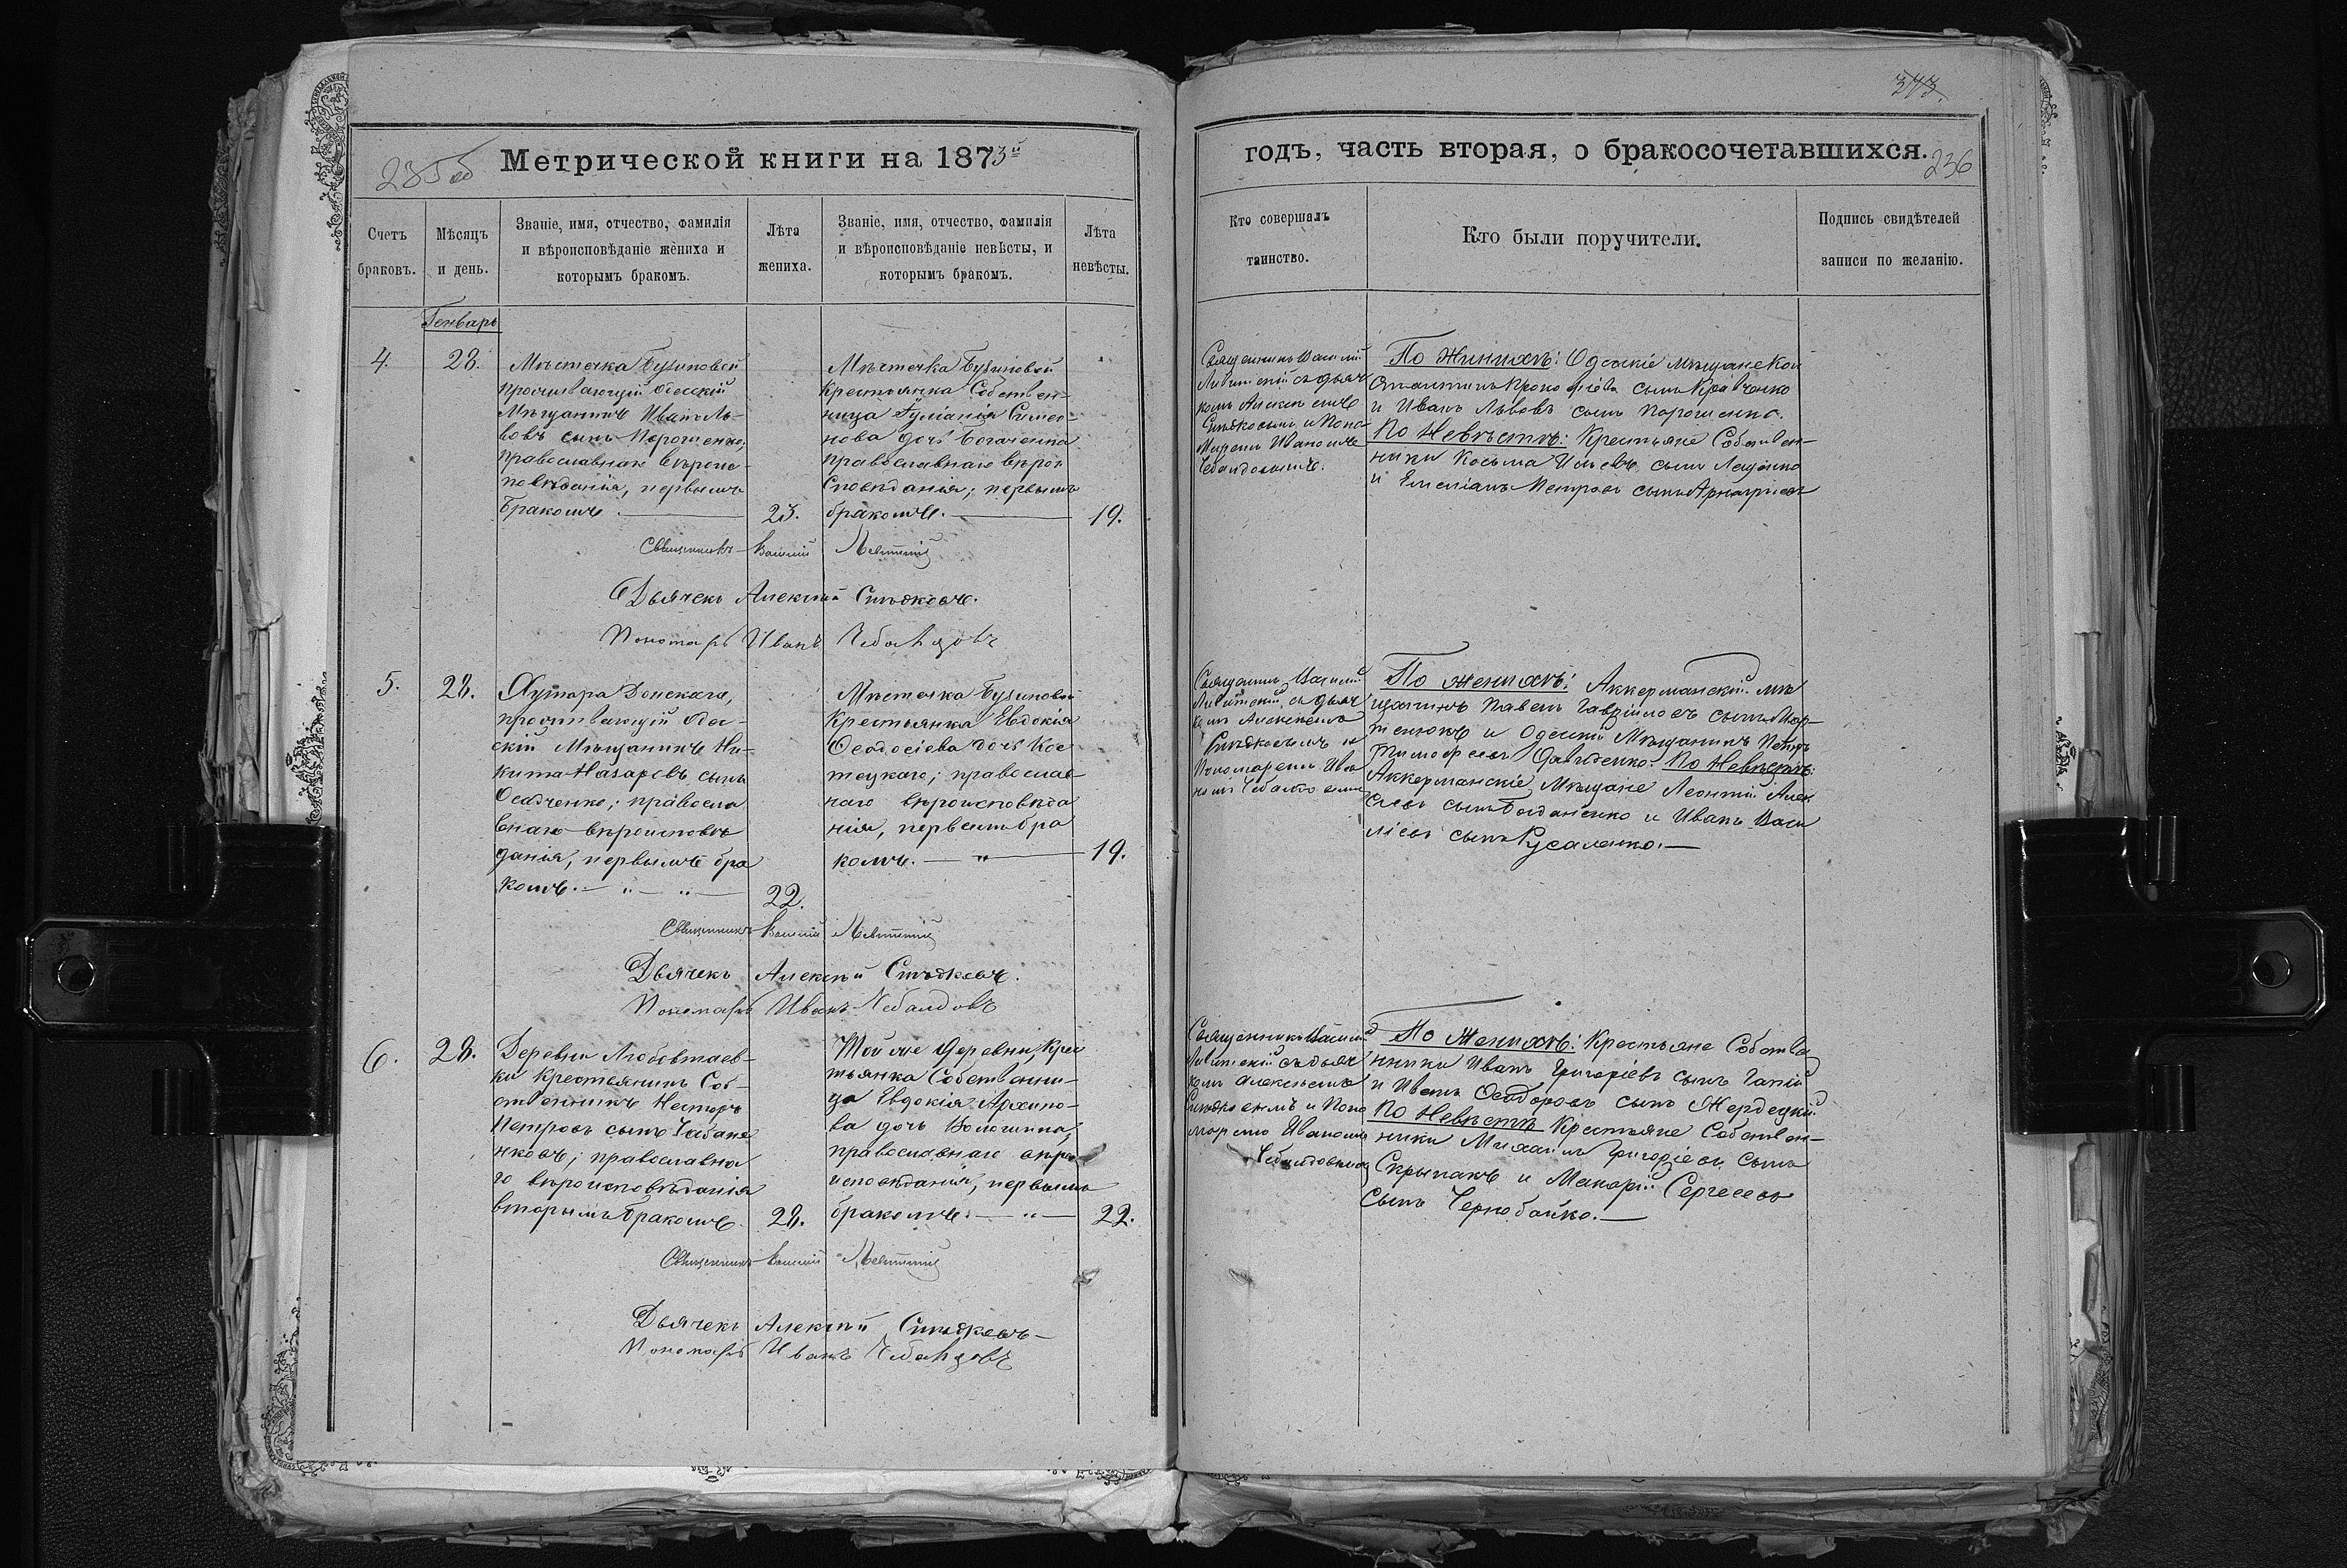 373.
235 об
Метрической книги на 1873й
годъ, часть вторая, о бракосочетавшихся.
236
Счетъ браковъ.
Мѣсяцъ и день.
Званіе, имя, отчество, фамилія
и вѣроисповѣданіе жениха и
которымъ бракомъ.
Лѣта жениха.
Званіе, имя, отчество, фамилія
и вѣроисповѣданіе невѣсты, и
которымъ бракомъ.
Лѣта невѣсты.
Кто совершалъ
таинство.
Кто были поручители.
Подпись свидѣтелей
записи по желанію.
Генварь
4.
28.
Мѣстечка Бузиновой
проживающій Одесскій
Мѣщанинъ Иванъ Ль-
вовъ сынъ Порошенко,
православнаго вѣроис-
повѣданія, первымъ
бракомъ.
23.
Мѣстечка Бузиновой
Крестьянка Собствен-
ница Іуліанія Симео-
нова дочь
православнаго вѣрои
сповѣданія; первымъ
бракомъ.
19.
Священникъ Василій
Левитскій съ дьяч
комъ Алексѣемъ
и Поно
маремъ Иваномъ
Чебандовымъ.
По Женихѣ: Одескіе мѣщане Кон
стантинъ Прокофіевъ сынъ Кравченко
и Иванъ Львовъ сынъ Порошенко.
По Невѣстѣ: Крестьяне Собствен-
ники Косьма Ильевъ сынъ
и Емеліанъ Петровъ сынъ
Священникъ Василій Левитскій
Дьячекъ Алексѣй
Пономарь Иванъ Чебандовъ
5.
28.
Хутора Донскаго,
проживающій Одес-
скій Мѣщанинъ Ни-
кита Назаровъ сынъ
Осадченко; правосла
внаго вѣроисповѣ
данія, первымъ бра
комъ. — „ — „ —
22.
Мѣстечка Бузиновой
Крестьянка Евдокія
Ѳеодосіева дочь Кос
тецкаго; православ-
наго вѣроисповѣда
нія, первымъ бра
комъ. — „ —
19.
Священникъ Василій
Левитскій съ дьяч
комъ Алексѣемъ
и
Пономаремъ Ива
номъ Чебандовымъ
По женихѣ: Аккерманскій мѣ
щанинъ Павелъ Гавріиловъ сынъ Мар-
тенюкъ и Одескій Мѣщанинъ Петръ
Тимофеевъ Давиденко. По Невѣстѣ:
Аккерманскіе Мѣщане Леонтій Алек
сѣевъ сынъ Богданенко и Иванъ Васи
ліевъ сынъ Русаленко. —
Священникъ Василій Левитскій
Дьячекъ Алексѣй
Пономарь Иванъ Чебандовъ
6.
28.
Деревни Любовтаев-
ки Крестьянинъ Соб-
ственникъ Несторъ
Петровъ сынъ Чабане
нковъ; православна
го вѣроисповѣданія
вторымъ бракомъ.
28.
Той же деревни, Крес
тьянка Собственни-
ца Евдокія Архипо-
ва дочь
православнаго вѣро
исповѣданія, первымъ
бракомъ. — „ —
22.
Священникъ Василій
Левитскій съ дьяч
комъ Алексѣемъ
и Поно
маремъ Иваномъ
Чебандовымъ
По Женихѣ: Крестьяне Собстве
нники Иванъ Григоріевъ сынъ Гапій
и Иванъ Ѳеодоровъ сынъ Жердецкій
По Невѣстѣ Крестьяне Собствен-
ники Михаилъ Григоріевъ сынъ
Скрыпакъ и Макарій Сергѣевъ
сынъ Чернобайко. —
Священникъ Василій Левитскій
Дьячекъ Алексѣй
Пономарь Иванъ Чебандовъ